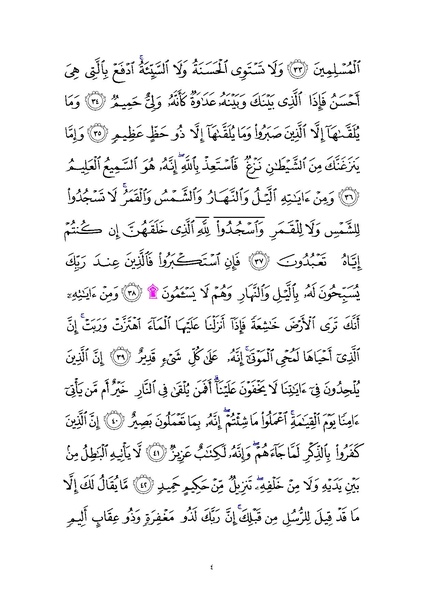 ٱلۡمُسۡلِمِينَ ٣٣ وَلَا تَسۡتَوِي ٱلۡحَسَنَةُ وَلَا ٱلسَّيِّئَةُۚ ٱدۡفَعۡ بِٱلَّتِي هِيَ
أَحۡسَنُ فَإِذَا ٱلَّذِي بَيۡنَكَ وَبَيۡنَهُۥ عَدَٰوَةٞ كَأَنَّهُۥ وَلِيٌّ حَمِيمٞ ٣٤ وَمَا
يُلَقَّىٰهَآ إِلَّا ٱلَّذِينَ صَبَرُواْ وَمَا يُلَقَّىٰهَآ إِلَّا ذُو حَظٍّ عَظِيمٖ ٣٥ وَإِمَّا
يَنزَغَنَّكَ مِنَ ٱلشَّيۡطَٰنِ نَزۡغٞ فَٱسۡتَعِذۡ بِٱللَّهِۖ إِنَّهُۥ هُوَ ٱلسَّمِيعُ ٱلۡعَلِيمُ
٣٦ وَمِنۡ ءَايَٰتِهِ ٱلَّيۡلُ وَٱلنَّهَارُ وَٱلشَّمۡسُ وَٱلۡقَمَرُۚ لَا تَسۡجُدُواْ
لِلشَّمۡسِ وَلَا لِلۡقَمَرِ وَٱسۡجُدُواْۤ لِلَّهِۤ ٱلَّذِي خَلَقَهُنَّ إِن كُنتُمۡ
إِيَّاهُ تَعۡبُدُونَ ٣٧ فَإِنِ ٱسۡتَكۡبَرُواْ فَٱلَّذِينَ عِندَ رَبِّكَ
يُسَبِّحُونَ لَهُۥ بِٱلَّيۡلِ وَٱلنَّهَارِ وَهُمۡ لَا يَسۡـَٔمُونَ۩ ٣٨ وَمِنۡ ءَايَٰتِهِۦٓ
أَنَّكَ تَرَى ٱلۡأَرۡضَ خَٰشِعَةٗ فَإِذَآ أَنزَلۡنَا عَلَيۡهَا ٱلۡمَآءَ ٱهۡتَزَّتۡ وَرَبَتۡۚ إِنَّ
ٱلَّذِيٓ أَحۡيَاهَا لَمُحۡيِ ٱلۡمَوۡتَىٰٓۚ إِنَّهُۥ عَلَىٰ كُلِّ شَيۡءٖ قَدِيرٌ ٣٩ إِنَّ ٱلَّذِينَ
يُلۡحِدُونَ فِيٓ ءَايَٰتِنَا لَا يَخۡفَوۡنَ عَلَيۡنَآۗ أَفَمَن يُلۡقَىٰ فِي ٱلنَّارِ خَيۡرٌ أَم مَّن يَأۡتِيٓ
ءَامِنٗا يَوۡمَ ٱلۡقِيَٰمَةِۚ ٱعۡمَلُواْ مَا شِئۡتُمۡ إِنَّهُۥ بِمَا تَعۡمَلُونَ بَصِيرٌ ٤٠ إِنَّ ٱلَّذِينَ
كَفَرُواْ بِٱلذِّكۡرِ لَمَّا جَآءَهُمۡۖ وَإِنَّهُۥ لَكِتَٰبٌ عَزِيزٞ ٤١ لَّا يَأۡتِيهِ ٱلۡبَٰطِلُ مِنۢ
بَيۡنِ يَدَيۡهِ وَلَا مِنۡ خَلۡفِهِۦۖ تَنزِيلٞ مِّنۡ حَكِيمٍ حَمِيدٖ ٤٢ مَّا يُقَالُ لَكَ إِلَّا
مَا قَدۡ قِيلَ لِلرُّسُلِ مِن قَبۡلِكَۚ إِنَّ رَبَّكَ لَذُو مَغۡفِرَةٖ وَذُو عِقَابٍ أَلِيمٖ
٤